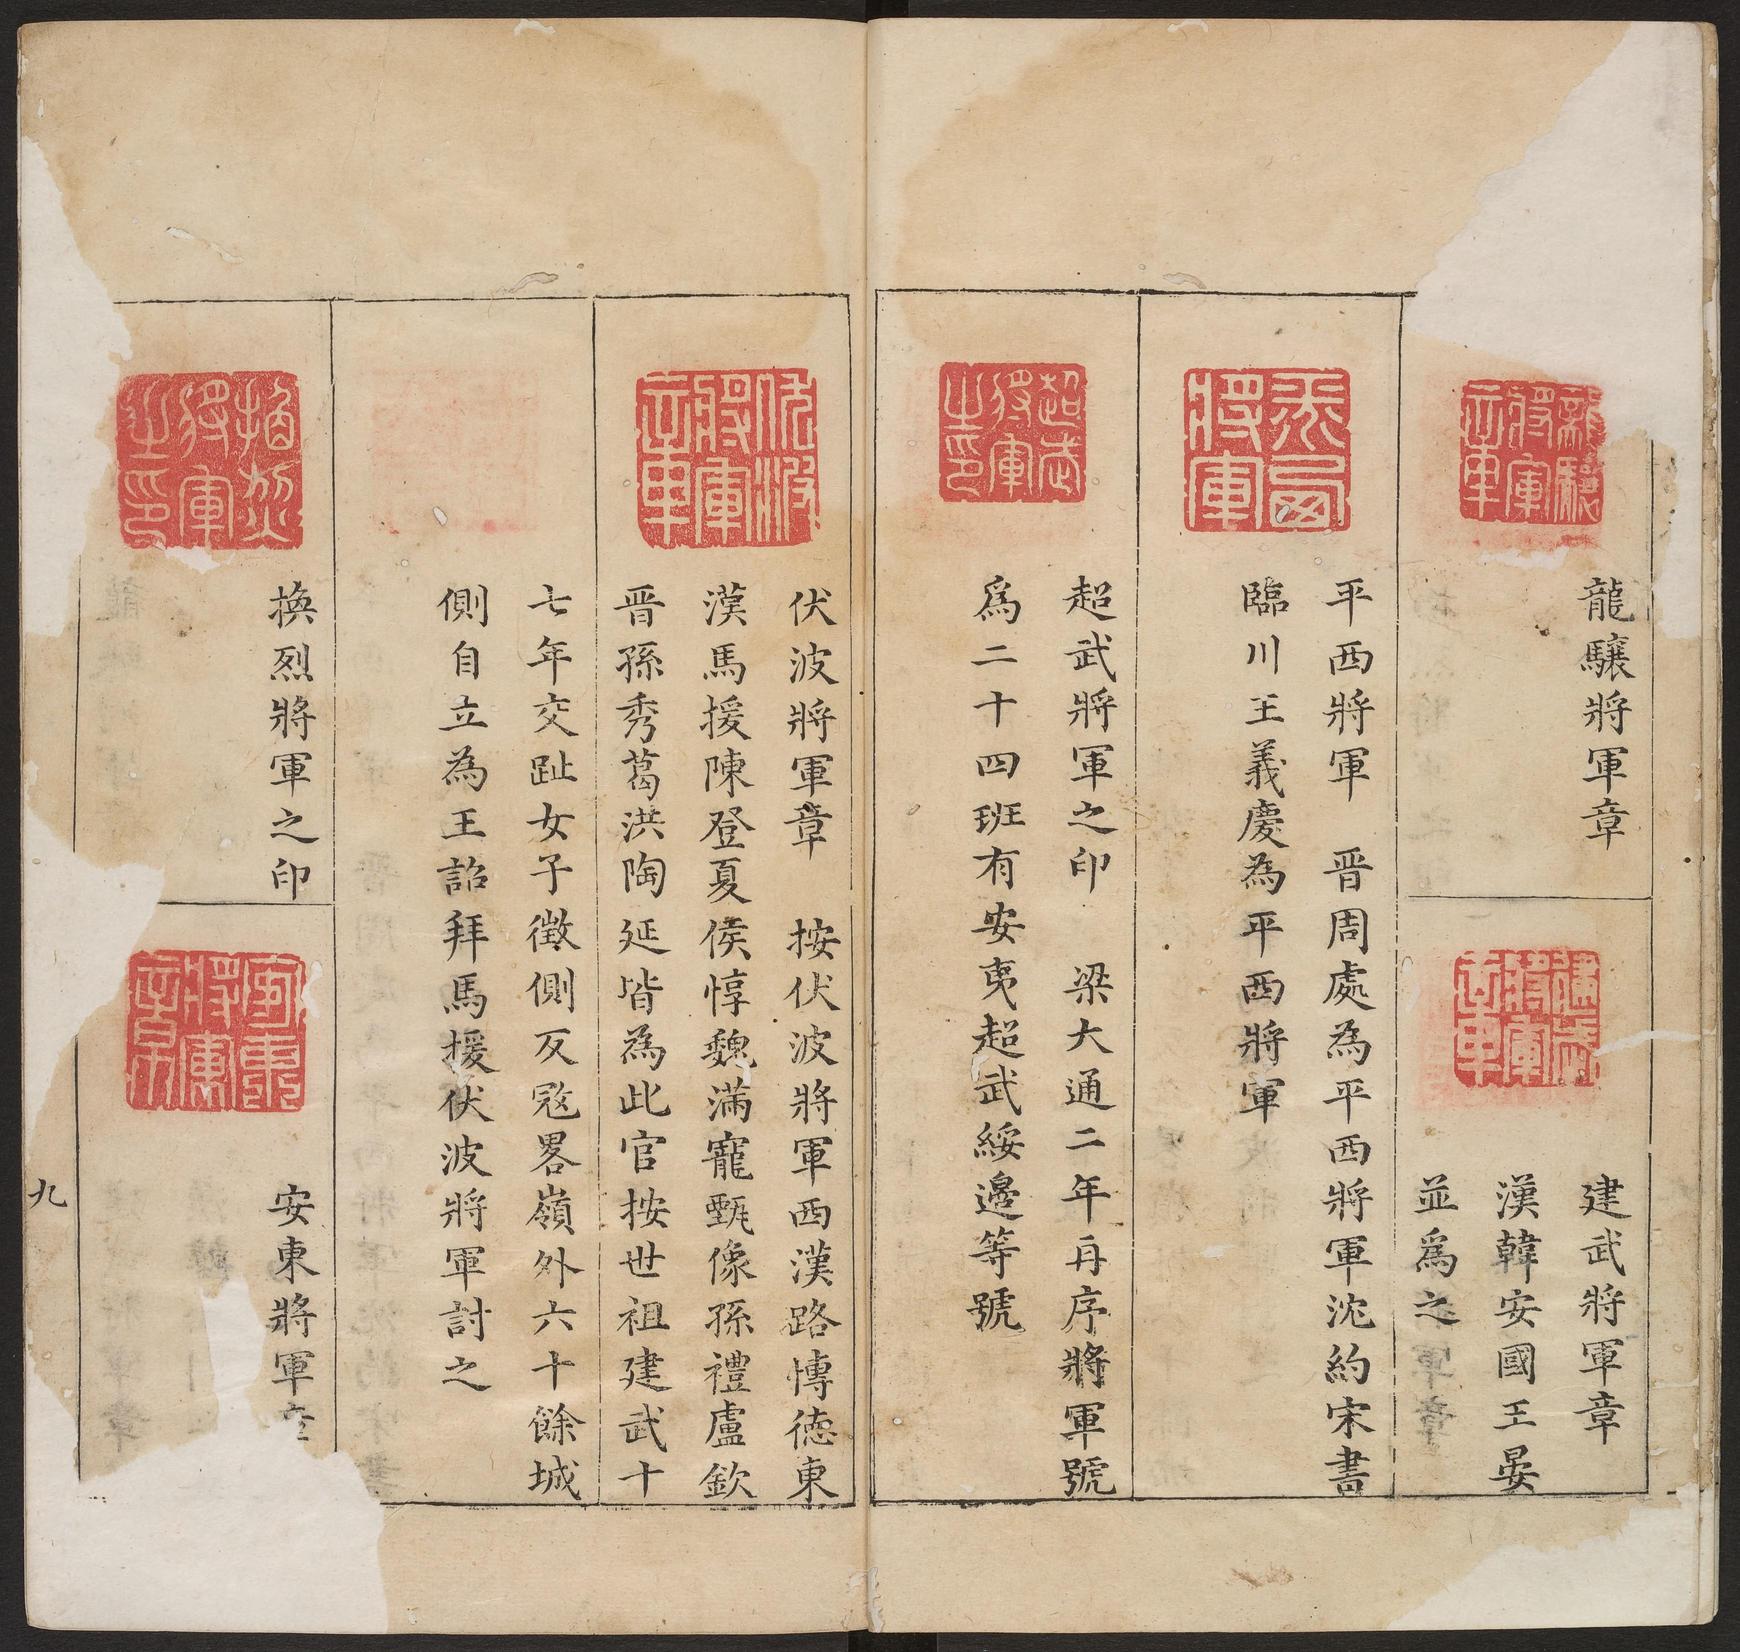 龍驤將軍章
建武將軍章
漢韓安國王晏
並爲之
平西將軍　晋周處為平西將軍沈約宋書
臨川王義慶為平西將軍
超武將軍之印　梁大通二年再序將軍號
爲二十四班有安夷超武綏邉等號
伏波將軍章　按伏波將軍西漢路博德東
漢馬援陳登夏侯惇魏滿寵甄像孫禮盧欽
晋孫秀葛洪陶延皆為此官按世祖建武十
七年交趾女子徵側反冦畧嶺外六十餘城
側自立為王詔拜馬援伏波將軍討之
換烈將軍之印
安東將軍
九